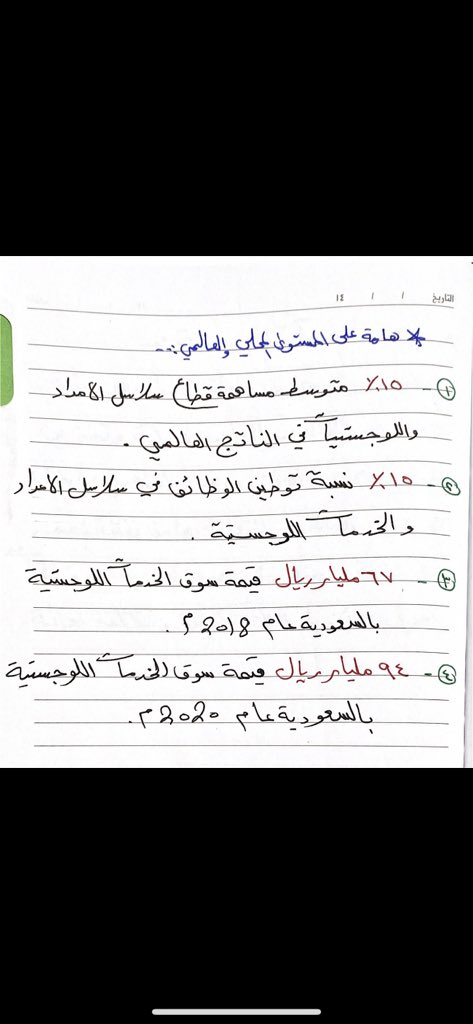 التاريخ / / ١٤
* هامة على المستوى المحلي والعالمي:..
١- ١٥٪ متوسط مساهمة قطاع سلاسل الامداد
واللوجستيات في الناتج العالمي.
٢- ١٥٪ نسبة توطين الوظائف في سلاسل الامداد
والخدمات اللوجستية.
٣- ٦٧ مليار ريال قيمة سوق الخدمات اللوجستية
بالسعودية عام 2018م.
٤- ٩٤ مليار ريال قيمة سوق الخدمات اللوجستية
بالسعودية عام 2020م.